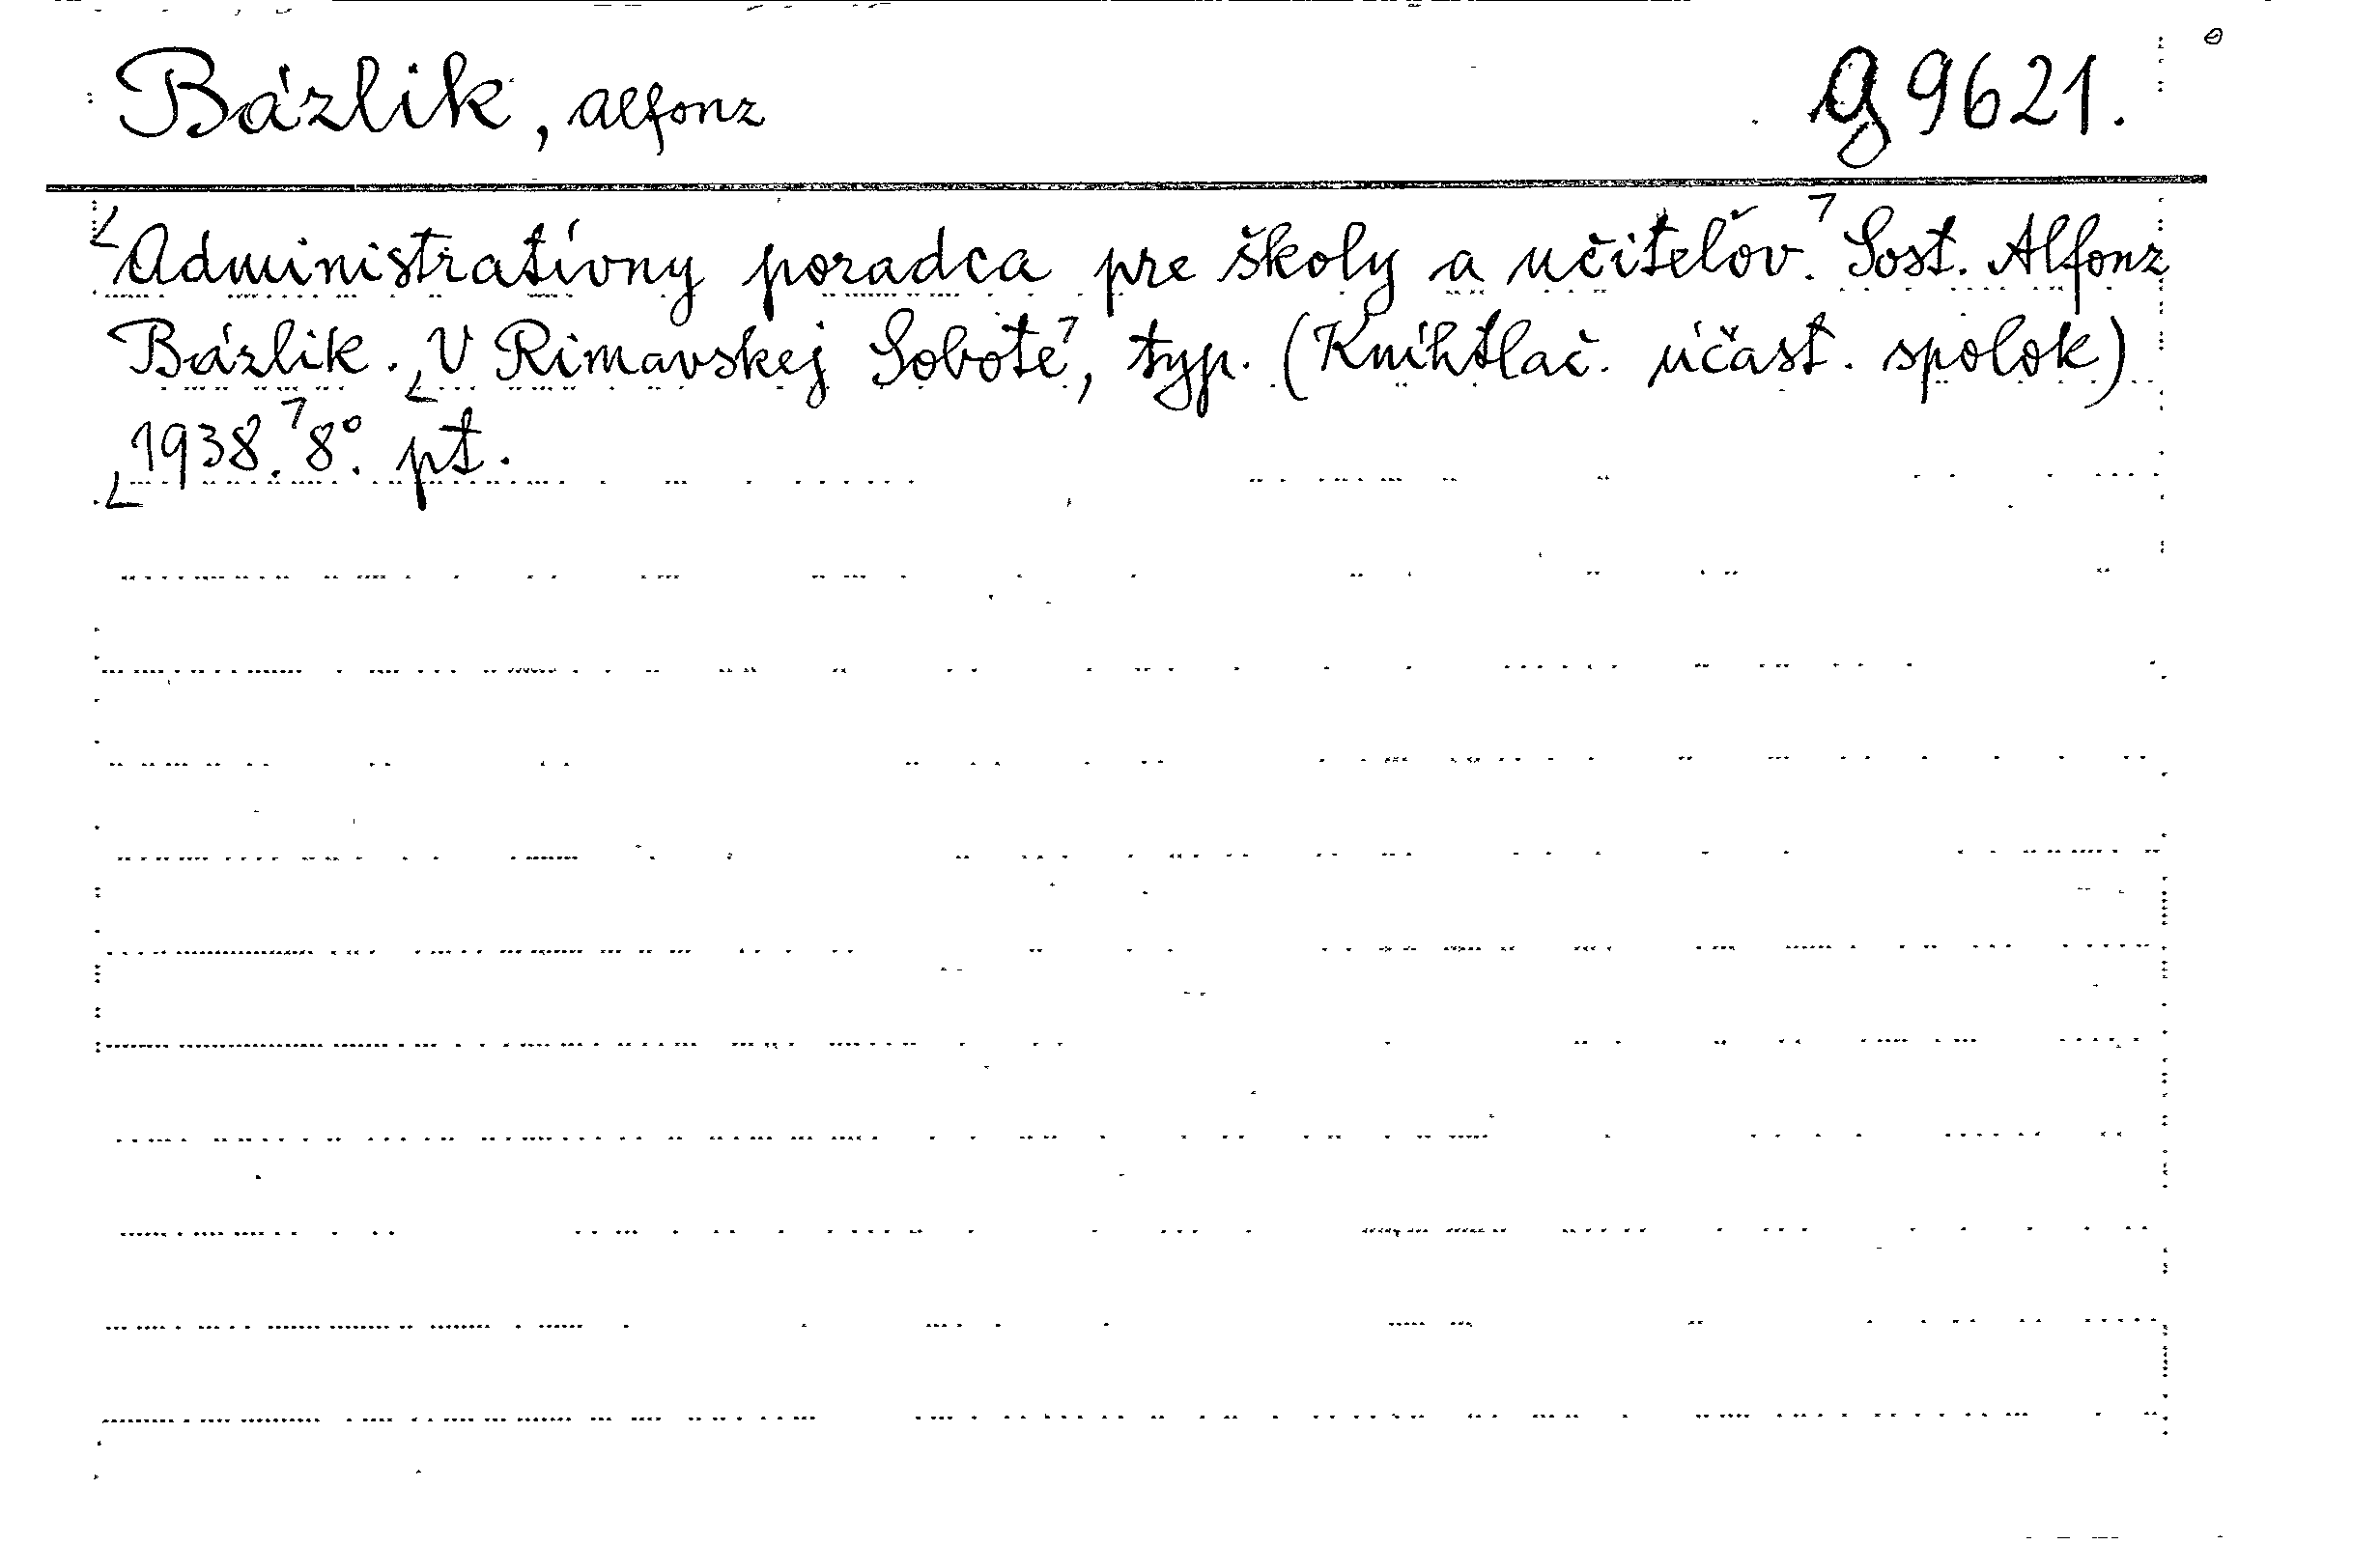 Bázlik, Alfonz g 9621.
Administratívny poradca pre školy a učiteľov. Sost. Alfonz
Bázlik. V Rimavskej Sobote, typ. (Kníhtlač. účast. spolok)
1938. 8°. pt.